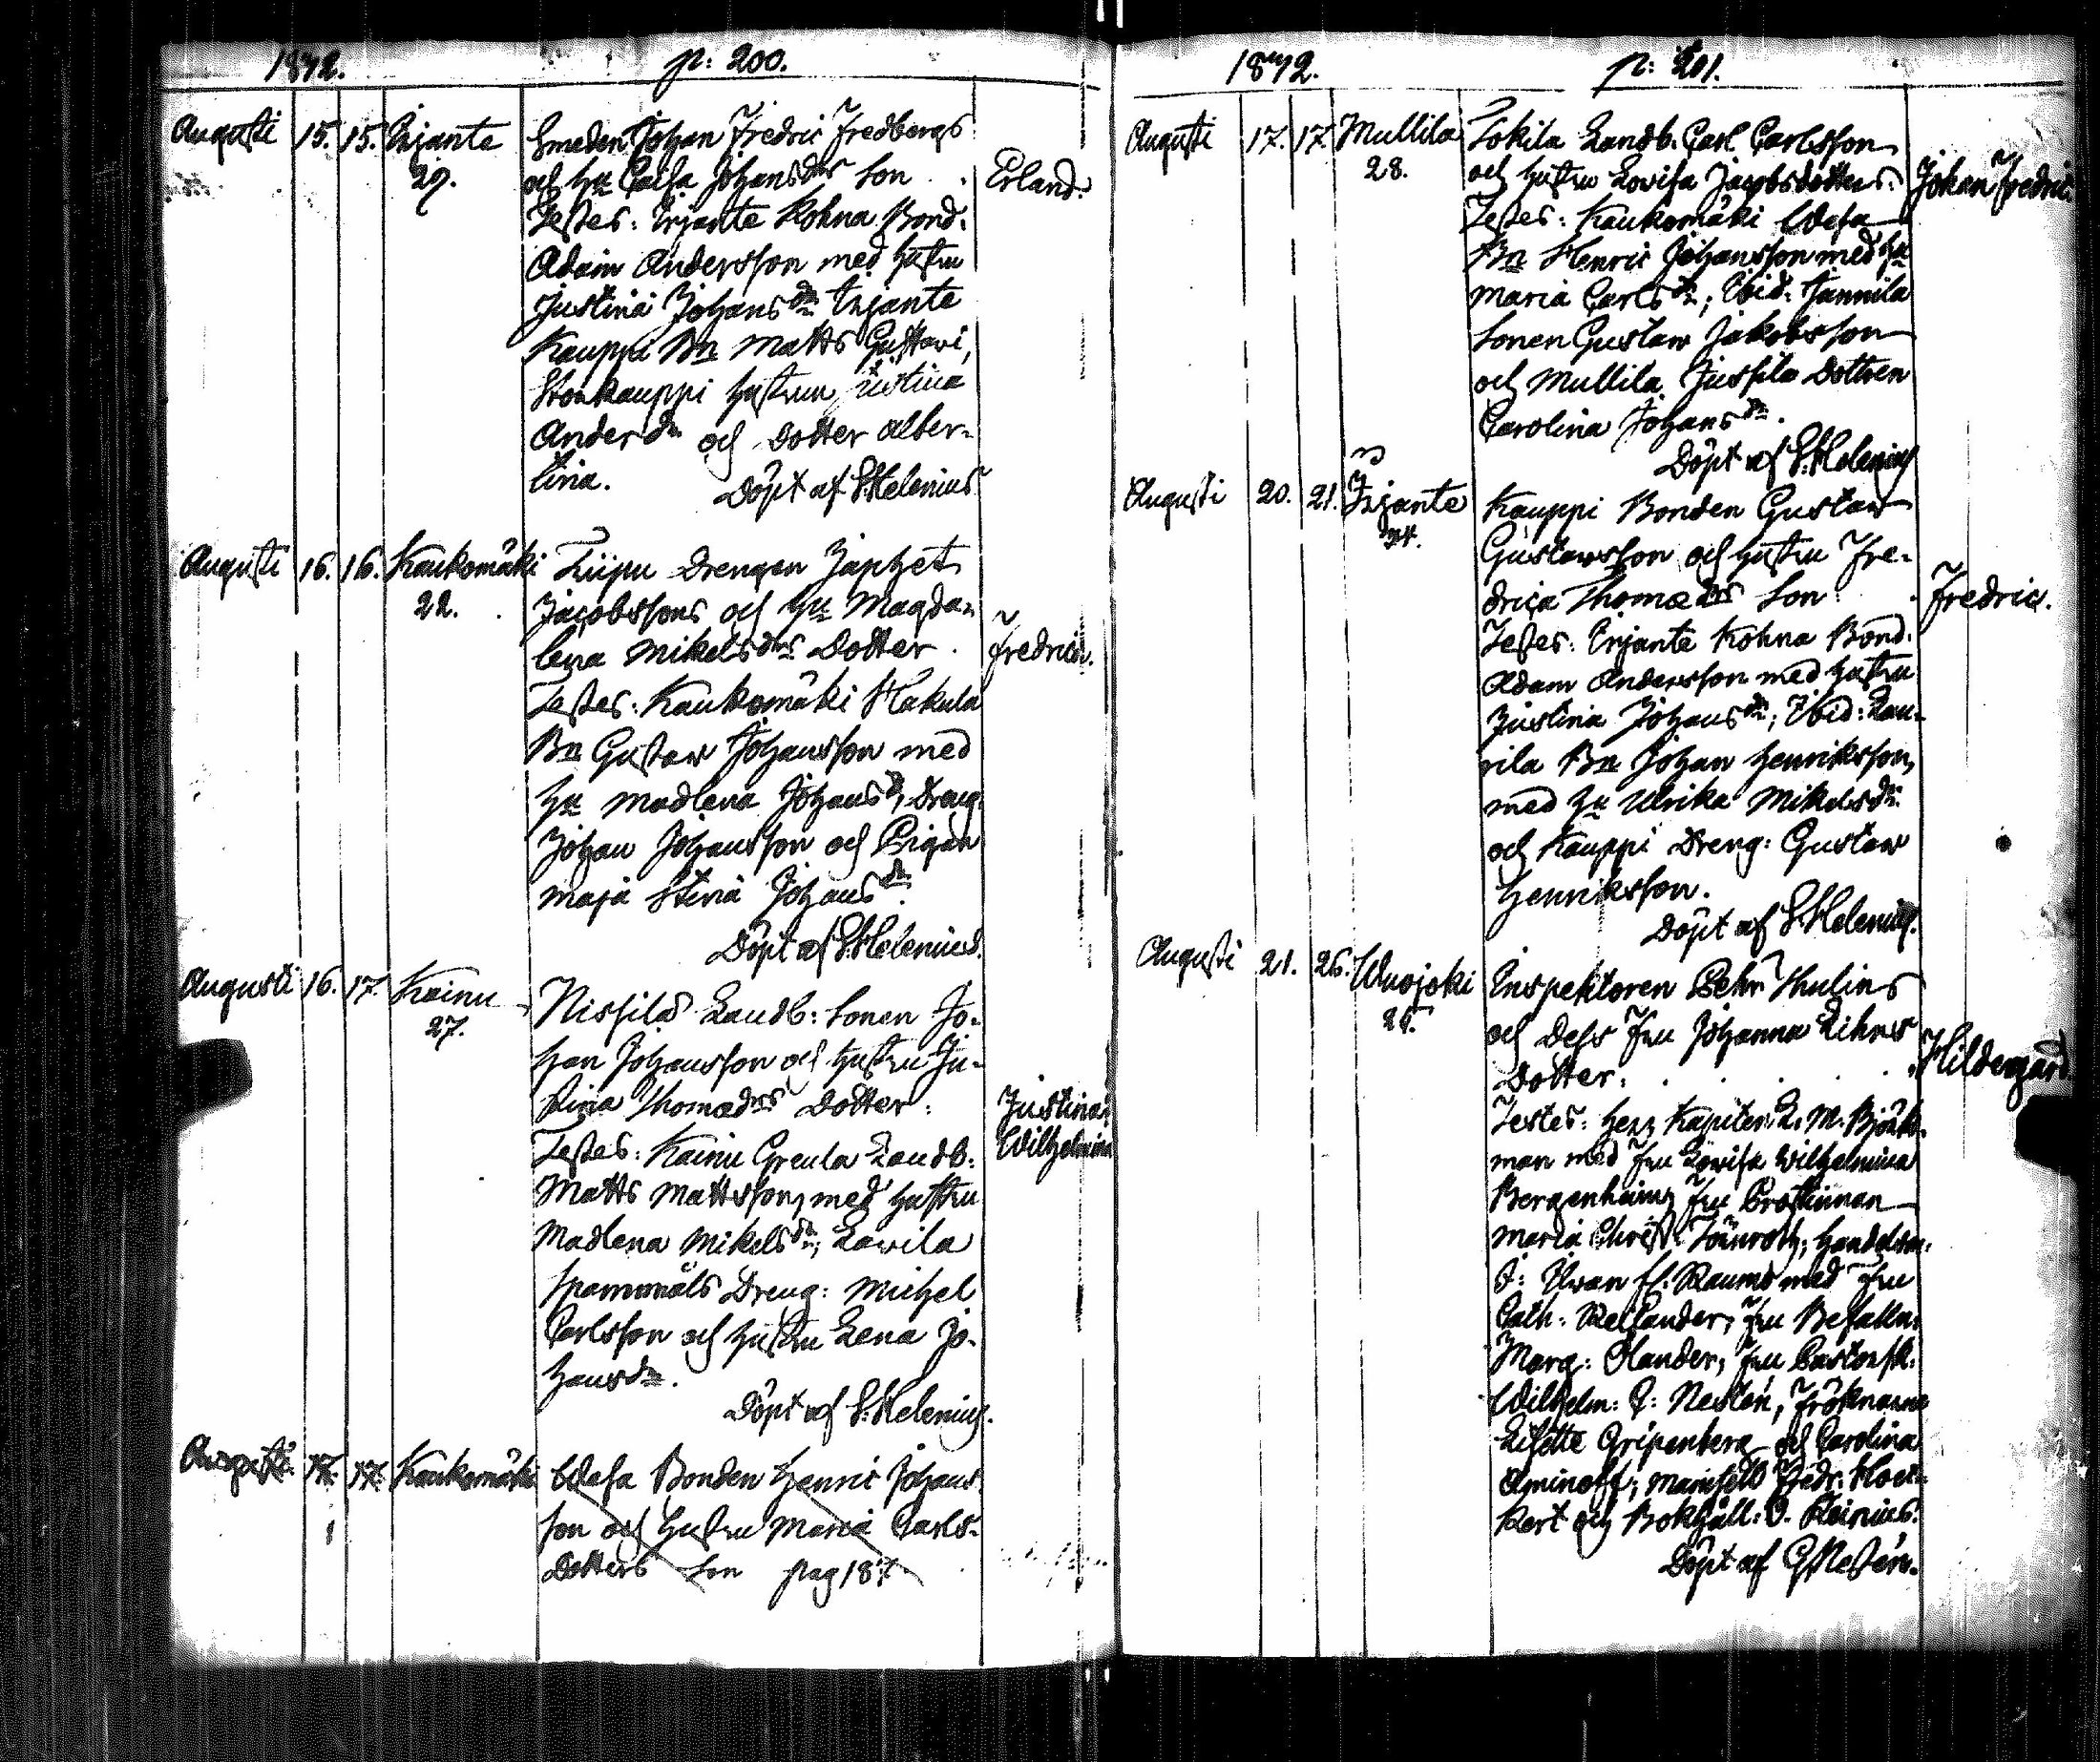 1842. p: 200.
Augusti 15. 15. Irjante Smeden Johan Fredric Fredbergs
29. och Hu Caisa Johansdrs Son . Erland.
Testes: Irjante Kohna Bond:
Adam Andersson med hustru
Justina Johansdr Irjante
Kauppi Bn Matts Gustavi,
Storkauppi hustrun Justina
Anderdr och Dotter Alber-
tina. Döpt af S. Helenius
Augusti 16. 16. Kaukomäki Tiipu Drengen Japhet
22. Jacobssons och Hu Magda-
lena Mikelsdrs Dotter . Fredrica.
Testes: Kaukomäki Hakula
Bn Gustaw Johansson med
Hu Madlena Johansdr, Dreng.
Johan Johansson och Pigan
Maja Stina Johansdr.
Döpt af S. Helenius.
Augusti 16. 17. Kainu Nissilä Landb: Sonen Jo-
27. han Johansson och hustru Ju-
stina Thomædrs Dotter: Justina
Testes: Kainu Greula Landb: Wilhelmina
Matts Mattsson, med hustru
Madlena Mikelsdr; Lawila
Spammäls Dreng: Michel
Carlsson och hustru Lena Jo-
hansdr.
Döpt af S. Helenius.
Augusti 17. 17. Kaukomäki Wdesa Bonden Henric Johans
son och Hustru Maria Carls-
Dotters Son pag 187
1842. p: 201.
Augusti 17. 17. Mullila Tokila Landb. Carl Carlsson
28. och hustru Lovisa Jacobsdotters: Johan Fredric.
Testes: Kaukomäki Wdesa
Bn Henric Johansson med Hu
Maria Carlsdr; Ibid: Jannila
Sonen Gustaw Jakobsson
och Mullila Jussila Dottren
Carolina Johansdr.
Döpt af S. Helenius
Augusti 20. 21. Irjante Kauppi Bonden Gustaw
Gustawsson och hustru Fre-
drica Thomædrs Son . Fredric.
Testes: Irjante Kohna Bond:
Adam Andersson med hustru
Justina Johansdr; Ibid: Lau-
rila Bn Johan Henriksson,
med Hu Ulrika Mikelsdr
och Kauppi Dreng: Gustaw
Henriksson.
Döpt af S. Helenius.
Augusti 21. 26. Wuojoki Inspektoren Pehr Thulins
och Dess Fru Johanna Lihrs
Dotter: . . . . Hildergard.
Testes: Herr Kapiten L. M. Björk-
man med Fru Lowisa Wilhelmina
Bergenheim; Fru Prostinnan
Maria Christ. Tönroth; Handelsm:
J: Ilwan fr. Raumo med Fru
Cath: Rellander; Fru Befallm:
Marg: Olander; Fru Pastorsk:
Wilhelm: C: Nestén; Fröknarne
Lisette Gripenberg och Carolina
Aminoff; Mamsell Fredr: Hoec-
kert och Bokhåll: O. Heinius.
Döpt af G Nestén.